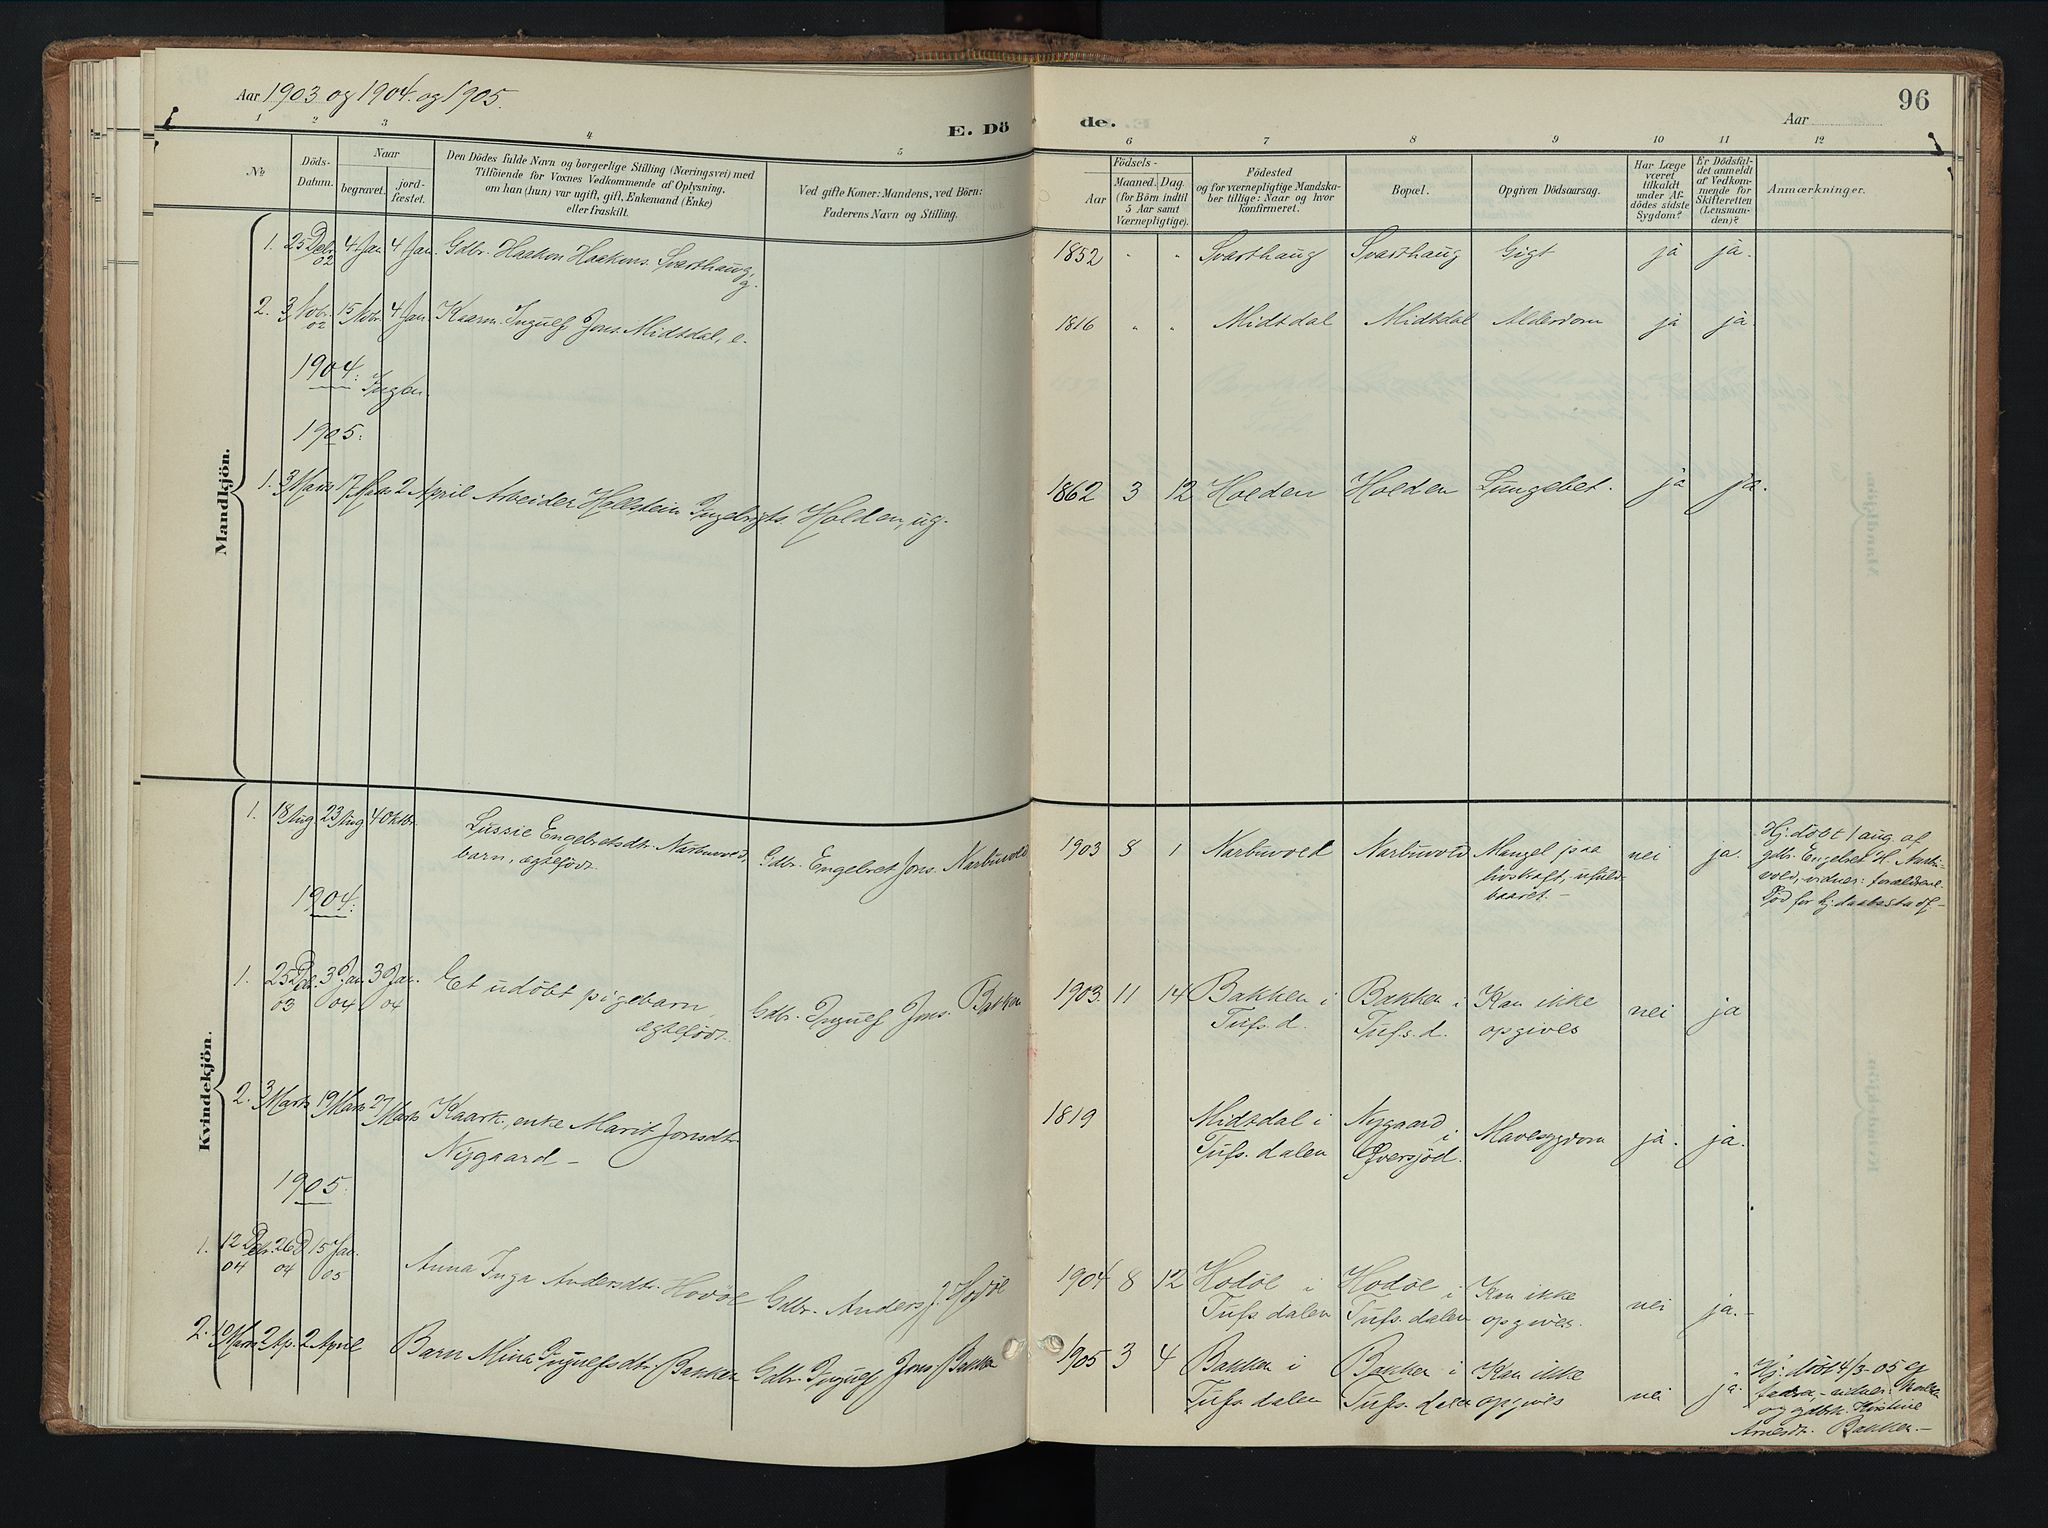 Aar 1903 og 1904. og 1905.
E. Dö
de.
Aar
96
1 2 3 4 5 6 7 8 9 10 11 12
№
Döds-
Datum.
Naar
begravet.
jord-
fæstet.
Den Dödes fulde Navn og borgerlige Stilling (Næringsvei) med
Tilföiende for Voxnes Vedkommende af Oplysning,
om han (hun) var ugift, gift, Enkemand (Enke)
eller fraskilt.
Ved gifte Koner: Mandens, ved Börn:
Faderens Navn og Stilling.
Födsels-
Aar
Maaned. Dag.
(for Börn indtil
5 Aar samt
Værnepligtige).
Födested
og for værnepligtige Mandska-
ber tillige: Naar og hvor
konfirmeret.
Bopæl.
Opgiven Dödsaarsag.
Har Læge
været
tilkaldt
under Af-
dödes sidste
Sygdom?
Er Dödsfal-
det anmeldt
af Vedkom-
mende for
Skifteretten
(Lensman-
den)?
Anmærkninger.
Mandkjön.
1. 25 Debr. 02 4 Jan 4 Jan. Gdbr. Haakon Haakens. Svarthaug, g. 1852 " " Svarthaug Svarthaug Gigt ja ja.
2. 3 Nobr. 02 15 Nobr. 4 Jan. Kaarm. Ingulf Jons. Midtdal, e. 1816 " " Midtdal Midtdal Alderdom ja ja.
1904:
Ingen.
1905:
1. 3 Marts 17 Marts 2 April Arbeider Hellstein Ingebrigts. Holden, ug. 1862 3 12 Holden Holden Lungebet. ja ja.
Kvindekjön.
1. 18 Aug 23 Aug 4 Oktbr. Lussie Engebretsdtr. Narbuvold,
barn, ægtefödt.
Gdbr. Engebret Jons. Narbuvold
1903 8 1 Narbuvold Narbuvold Mangel paa
livskraft, ufuld-
baaret. -
nei ja.
Hj: döbt 1 aug. af
gdbr. Engebret H. Narbu-
vold, vidner: forældrene.
Död för hj. daabs stadf. -
1904:
1. 25 Debr. 03 3 Jan. 04 3 Jan. 04 Et udöbt pigebarn,
ægtefödt.
Gdbr. Ingulf Jons. Bakken
1903. 11 14 Bakken i
Tufs. d.
Bakken i
Tufs. d.
Kan ikke
opgives
nei ja
2. 3 Marts 19 Marts 27 Marts Kaark., enke Marit Jonsdtr.
Nygaard -
1819 Midtdal i
Tufs. dalen
Nygaard
i
Øversjöd.
Mavesygdom ja. ja.
1905.
1. 12 Debr. 04 26 D 04 15 Jan. 05 Anna Inga Andersdtr. Hodöl Gdbr. Anders J. Hodöl
1904 8 12 Hodöl i
Tufs. dalen
Hodöl i
Tufs. dalen
Kan ikke
opgives.
nei ja. -
2. Marts 2 Ap. 2 April Barn Mina Ingulfsdtr. Bakken Gdbr. Ingulf Jons. Bakken
1905 3 4 Bakken i
Tufs. dalen
Bakken i
Tufs. dalen
Kan ikke
opgives
nei ja.
Hj: döbt 4/3-05 af
faderen, - vidner:
og gdbrk. Kirstine
Arnesdr. Bakken. -